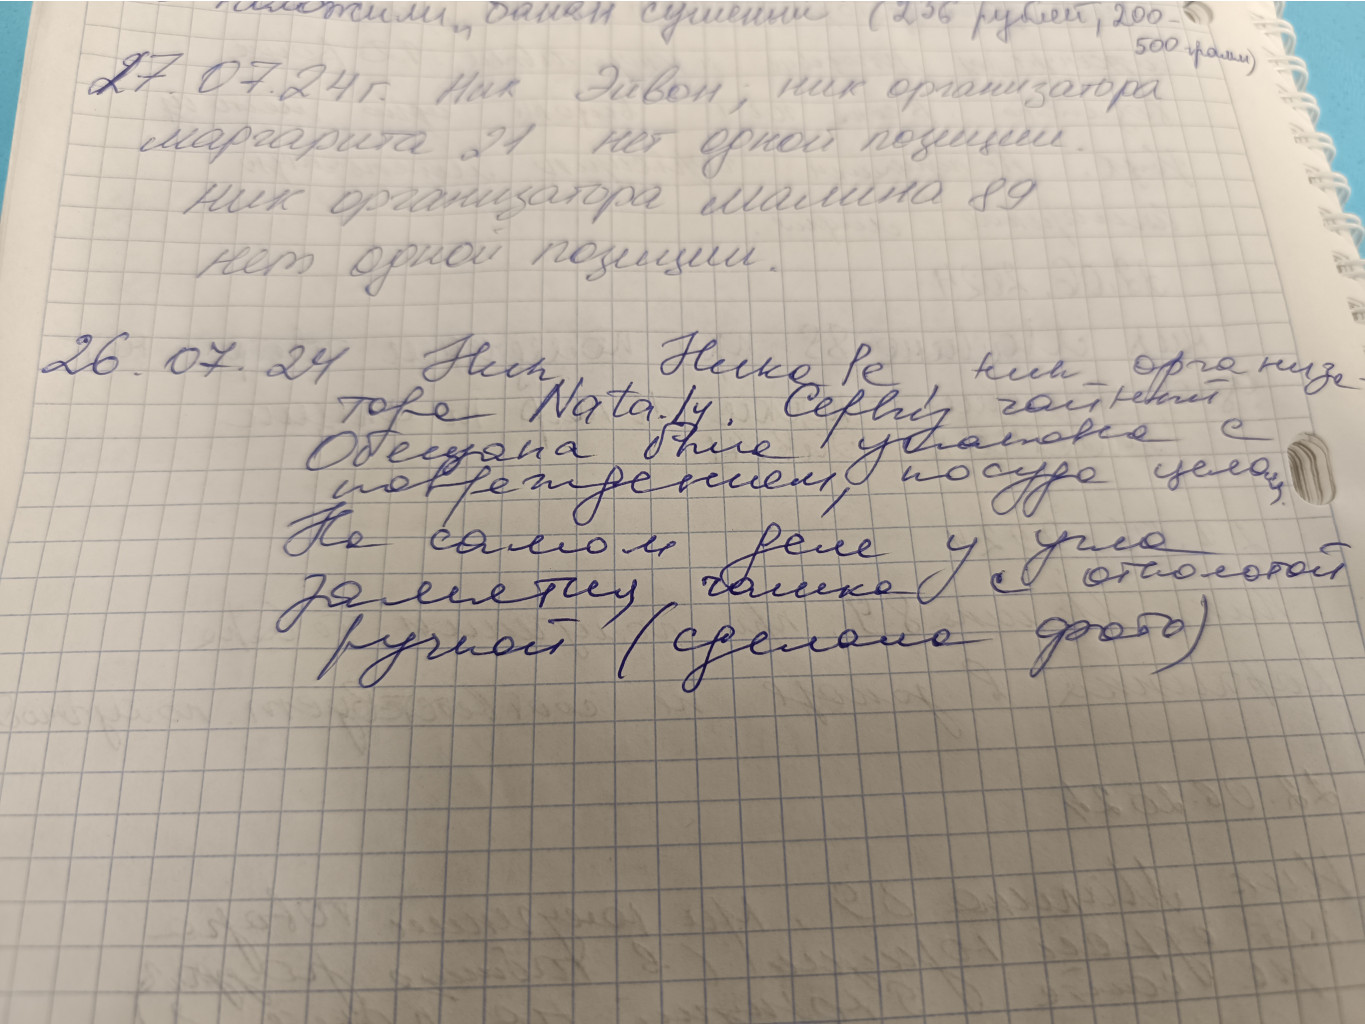 положили, банан сушенни (256 рублей, 200-
500 грамм)
27.07.24г. Ник Эйвон, ник организатора
маргарита 21 нет одной позиции.
Ник организатора малина 89
нет одной позиции.
26.07.24 Ник Ника Ре, ник организа-
тора Nata.ly. Сервиз чайный
Обещана была упаковка с
повреждением, посуда целая.
На самом деле у угла
заметил чашка с отколотой
ручкой (сделано фото)